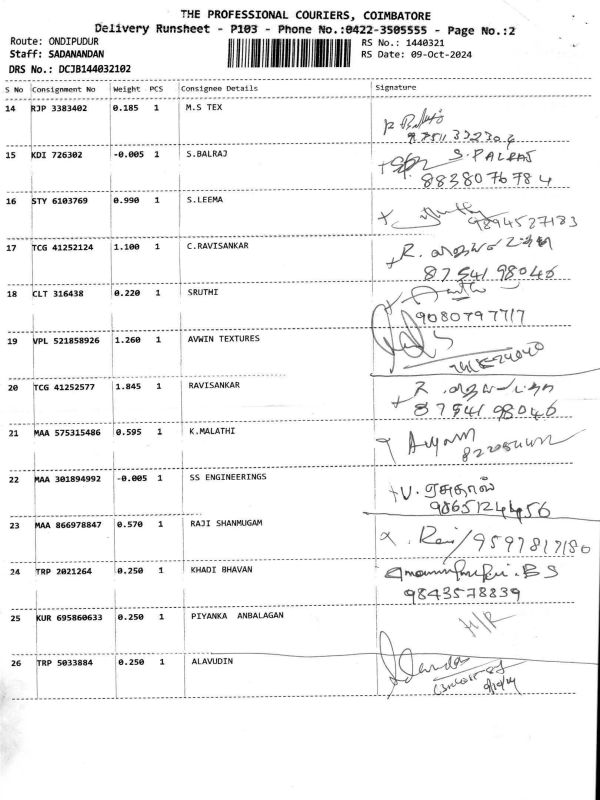 THE PROFESSIONAL COURIERS, COIMBATORE
Delivery Runsheet - P103 - Phone No.:0422-3505555 - Page No.:2
Route: ONDIPUDUR
RS No.: 1440321
Staff: SADANANDAN
RS Date: 09-Oct-2024
DRS No.: DCJB144032102
S No Consignment No Weight PCS Consignee Details Signature
14 RJP 3383402 0.185 1 M.S TEX
15 KDI 726302 -0.005 1 S.BALRAJ S. PALRAJ
8838076784
16 STY 6103769 0.990 1 S.LEEMA
9894527183
17 TCG 41252124 1.100 1 C.RAVISANKAR R.
87541 98046
18 CLT 316438 0.220 1 SRUTHI
9080797717
19 VPL 521858926 1.260 1 AVWIN TEXTURES
20 TCG 41252577 1.845 1 RAVISANKAR R.
87541 98046
21 MAA 575315486 0.595 1 K.MALATHI
22 MAA 301894992 -0.005 1 SS ENGINEERINGS
23 MAA 866978847 0.570 1 RAJI SHANMUGAM 9597817180
24 TRP 2021264 0.250 1 KHADI BHAVAN B S
9843578839
25 KUR 695860633 0.250 1 PIYANKA ANBALAGAN
26 TRP 5033884 0.250 1 ALAVUDIN